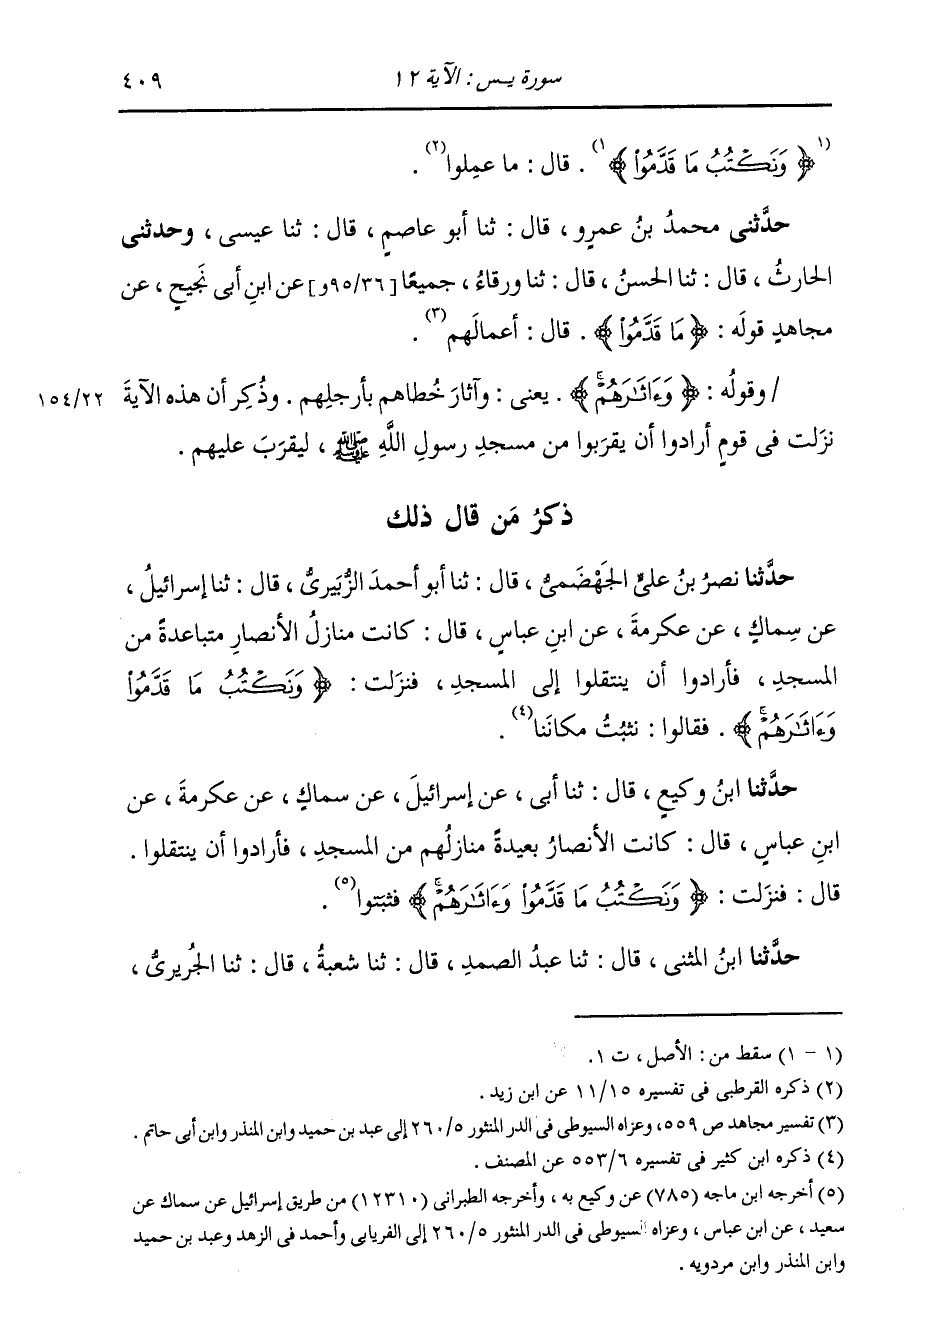 سورة يــس : الآية ١٢
٤٠٩
(١) ﴿ وَنَكْتُبُ مَا قَدَّمُوا ﴾ (١) . قال : ما عمِلوا (٢) .
حدَّثنى محمدُ بنُ عمرٍو ، قال : ثنا أبو عاصمٍ ، قال : ثنا عيسى ، وحدثنى
الحارثُ ، قال : ثنا الحسنُ ، قال : ثنا ورقاءُ ، جميعًا [٩٥/٣٦و] عن ابنِ أبى نَجيحٍ ، عن
مجاهدٍ قولَه : ﴿ مَا قَدَّمُوا ﴾ . قال : أعمالَهم (٣) .
/ وقولُه : ﴿ وَءَاثَـٰرَهُمْ ﴾ . يعنى : وآثارَ خُطاهم بأرجلِهم . وذُكِر أن هذه الآيةَ ١٥٤/٢٢
نزَلت فى قومٍ أرادوا أن يقرَبوا من مسجدِ رسولِ اللَّهِ ﷺ ، ليقرَبَ عليهم .
ذكرُ مَن قال ذلك
حدَّثنا نصرُ بنُ علىٍّ الجَهْضَمىُّ ، قال : ثنا أبو أحمدَ الزُّبَيرىُّ ، قال : ثنا إسرائيلُ ،
عن سِماكٍ ، عن عكرمةَ ، عن ابنِ عباسٍ ، قال : كانت منازلُ الأنصارِ متباعدةً من
المسجدِ ، فأرادوا أن ينتقلوا إلى المسجدِ ، فنزَلت : ﴿ وَنَكْتُبُ مَا قَدَّمُوا
وَءَاثَـٰرَهُمْ ﴾ . فقالوا : نثبُتُ مكانَنا (٤) .
حدَّثنا ابنُ وكيعٍ ، قال : ثنا أبى ، عن إسرائيلَ ، عن سماكٍ ، عن عكرمةَ ، عن
ابنِ عباسٍ ، قال : كانت الأنصارُ بعيدةً منازلُهم من المسجدِ ، فأرادوا أن ينتقلوا .
قال : فنزَلت : ﴿ وَنَكْتُبُ مَا قَدَّمُوا وَءَاثَـٰرَهُمْ ﴾ فثبَتوا (٥) .
حدَّثنا ابنُ المثنى ، قال : ثنا عبدُ الصمدِ ، قال : ثنا شعبةُ ، قال : ثنا الجُريرىُّ ،
(١ - ١) سقط من : الأصل ، ت ١ .
(٢) ذكره القرطبى فى تفسيره ١١/١٥ عن ابن زيد .
(٣) تفسير مجاهد ص ٥٥٩ ، وعزاه السيوطى فى الدر المنثور ٢٦٠/٥ إلى عبد بن حميد وابن المنذر وابن أبى حاتم .
(٤) ذكره ابن كثير فى تفسيره ٥٥٣/٦ عن المصنف .
(٥) أخرجه ابن ماجه (٧٨٥) عن وكيع به ، وأخرجه الطبرانى (١٢٣١٠) من طريق إسرائيل عن سماك عن
سعيد ، عن ابن عباس ، وعزاه السيوطى فى الدر المنثور ٢٦٠/٥ إلى الفريابى وأحمد فى الزهد وعبد بن حميد
وابن المنذر وابن مردويه .